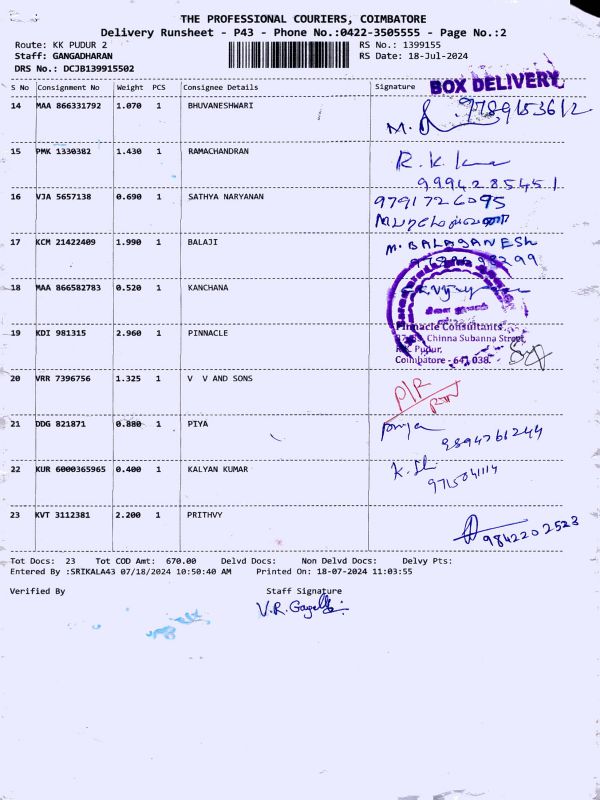 THE PROFESSIONAL COURIERS, COIMBATORE
Delivery Runsheet - P43 - Phone No.:0422-3505555 - Page No.:2
Route: KK PUDUR 2 RS No.: 1399155
Staff: GANGADHARAN RS Date: 18-Jul-2024
DRS No.: DCJB139915502
S No Consignment No Weight PCS Consignee Details Signature BOX DELIVERY
14 MAA 866331792 1.070 1 BHUVANESHWARI 9789153612
M.
15 PMK 1330382 1.430 1 RAMACHANDRAN R.K.
9994285451
16 VJA 5657138 0.690 1 SATHYA NARYANAN 9791726095
17 KCM 21422409 1.990 1 BALAJI M. BALAGANESH
18 MAA 866582783 0.520 1 KANCHANA
19 KDI 981315 2.960 1 PINNACLE Pinnacle Consultants
Chinna Subanna Street,
Pudur,
Coimbatore - 641 038.
20 VRR 7396756 1.325 1 V V AND SONS P/R
21 DDG 821871 0.880 1 PIYA Priya
9894761244
22 KUR 6000365965 0.400 1 KALYAN KUMAR
23 KVT 3112381 2.200 1 PRITHVY 9842202523
Tot Docs: 23 Tot COD Amt: 670.00 Delvd Docs: Non Delvd Docs: Delvy Pts:
Entered By :SRIKALA43 07/18/2024 10:50:40 AM Printed On: 18-07-2024 11:03:55
Verified By Staff Signature
V.R.